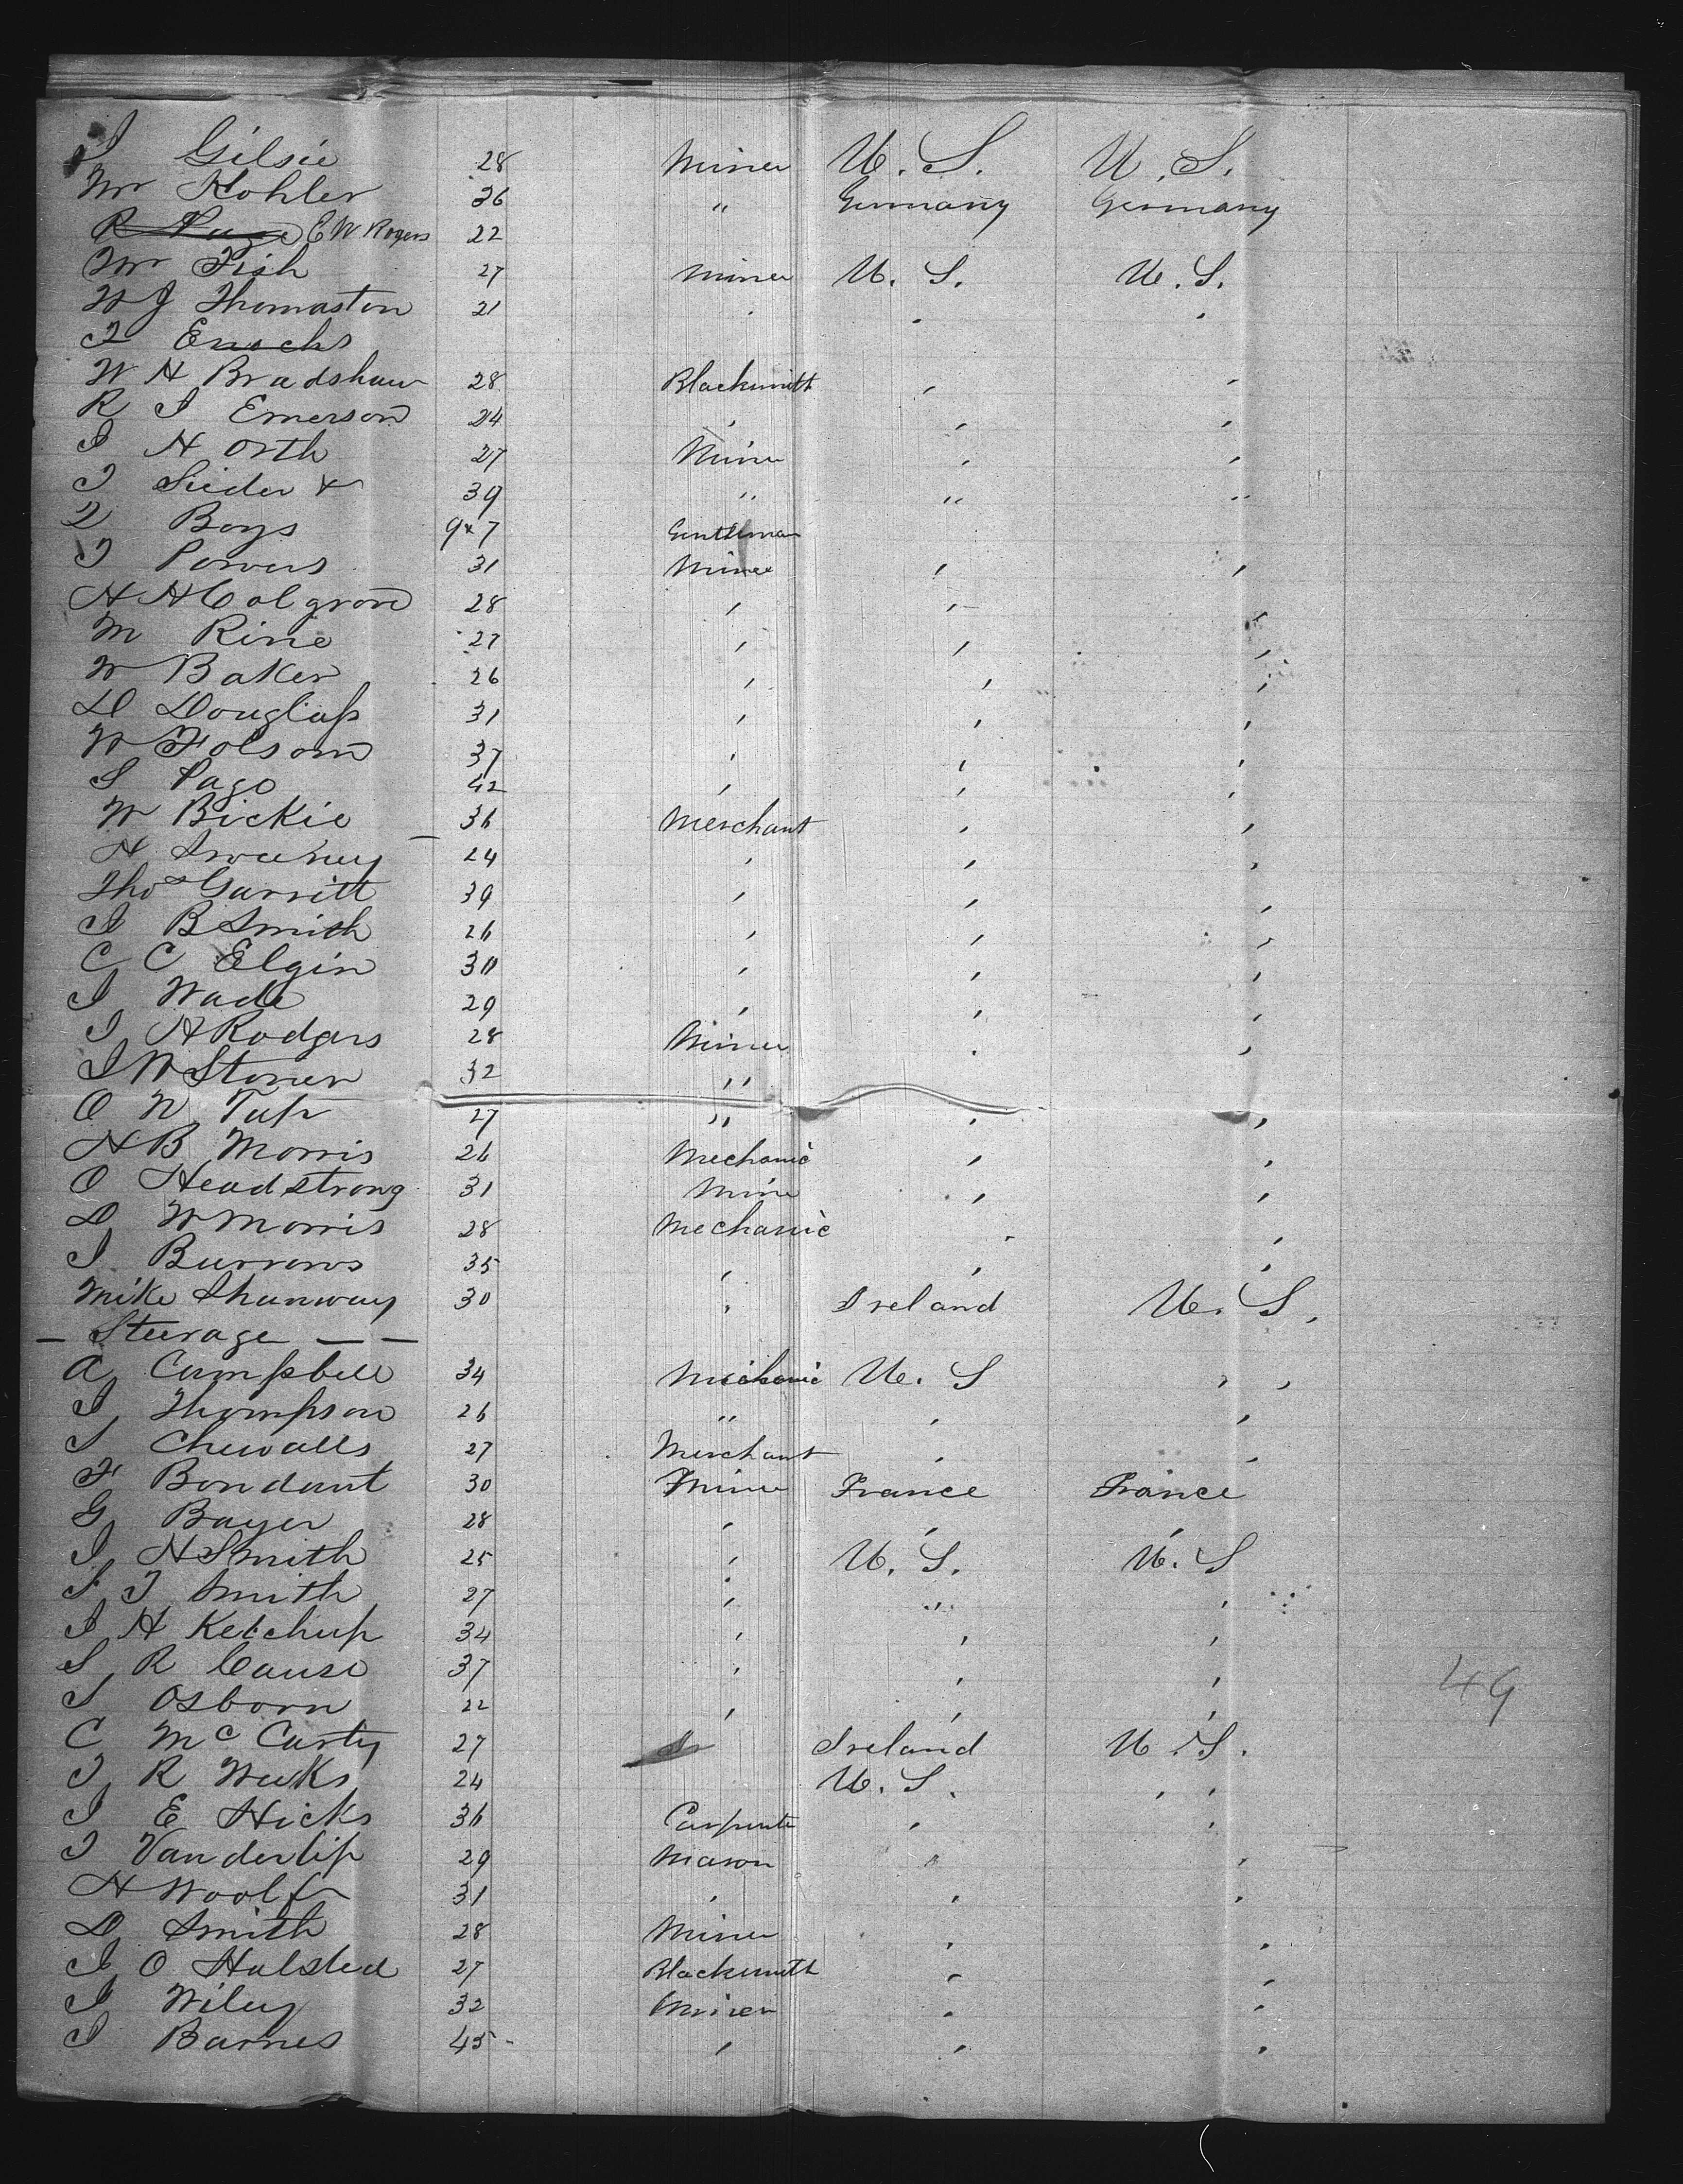 J Gilsie 28 Miner U. S. U. S.
Wm Kohler 26 " Germany Germany
R Page E W Rogers 22
Wm Fish 27 Miner U. S. U. S.
W J Thomaston 21
J Enochs
W H Bradshaw 28 Blacksmith , ,
R J Emerson 24 , , ,
J H Orth 27 Miner , ,
J Sieder & 39 " " "
2 Boys 9 & 7 Gentleman
J Powers 31 Miner , ,
H H Colgrove 28 , , ,
M Rine 27 , , ,
W Baker 26 , , ,
D Douglass 31 , , ,
W Folsom 37 , , ,
S Page 42 , , ,
W Bickie 36 Merchant , ,
H Sweeney 24 , , ,
Thos Garritt 39 , , ,
J B Smith 26 , , ,
C C Elgin 30 , , ,
J Wade 29 , , ,
J H Rodgers 28 Miner , ,
J W Stoner 32 "
O W Taft 27 " , ,
H B Morris 26 Mechanic , ,
O Headstrong 31 Mine , ,
D W Morris 28 Mechanic , ,
J Burrows 35 , , ,
Mike Shunway 30 , Ireland U. S.
— Steerage — —
A Campbell 34 Mechanic U. S , ,
J Thompson 26 " , ,
J Chewalls 27 Merchant , ,
F Bondant 30 Miner France France
G Bayer 28 , , ,
J H Smith 25 , U. S. U. S
S J Smith 27 , " ,
J H Ketchup 34 , , ,
S R Cause 37 , , ,
S Osborn 22 , , ,
C McCarty 27 Ireland U. S.
J R Weeks 24 U. S. , ,
J E Hicks 36 Carpenter , ,
J Vanderlip 29 Mason , ,
H Woolf 31 , , ,
D Smith 28 Miner , ,
J O Halsted 27 Blacksmith , ,
J Wiley 32 Miner , ,
J Barnes 45 , , ,
49